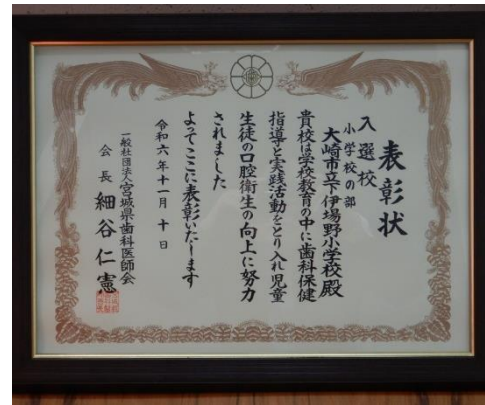 表彰状
入選校
小学校の部
大崎市立下伊場野小学校殿
貴校は学校教育の中に歯科保健
指導と実践活動をとり入れ児童
生徒の口腔衛生の向上に努力
されました
よってここに表彰いたします
令和六年十一月十日
一般社団法人宮城県歯科医師会
会長 細谷仁憲